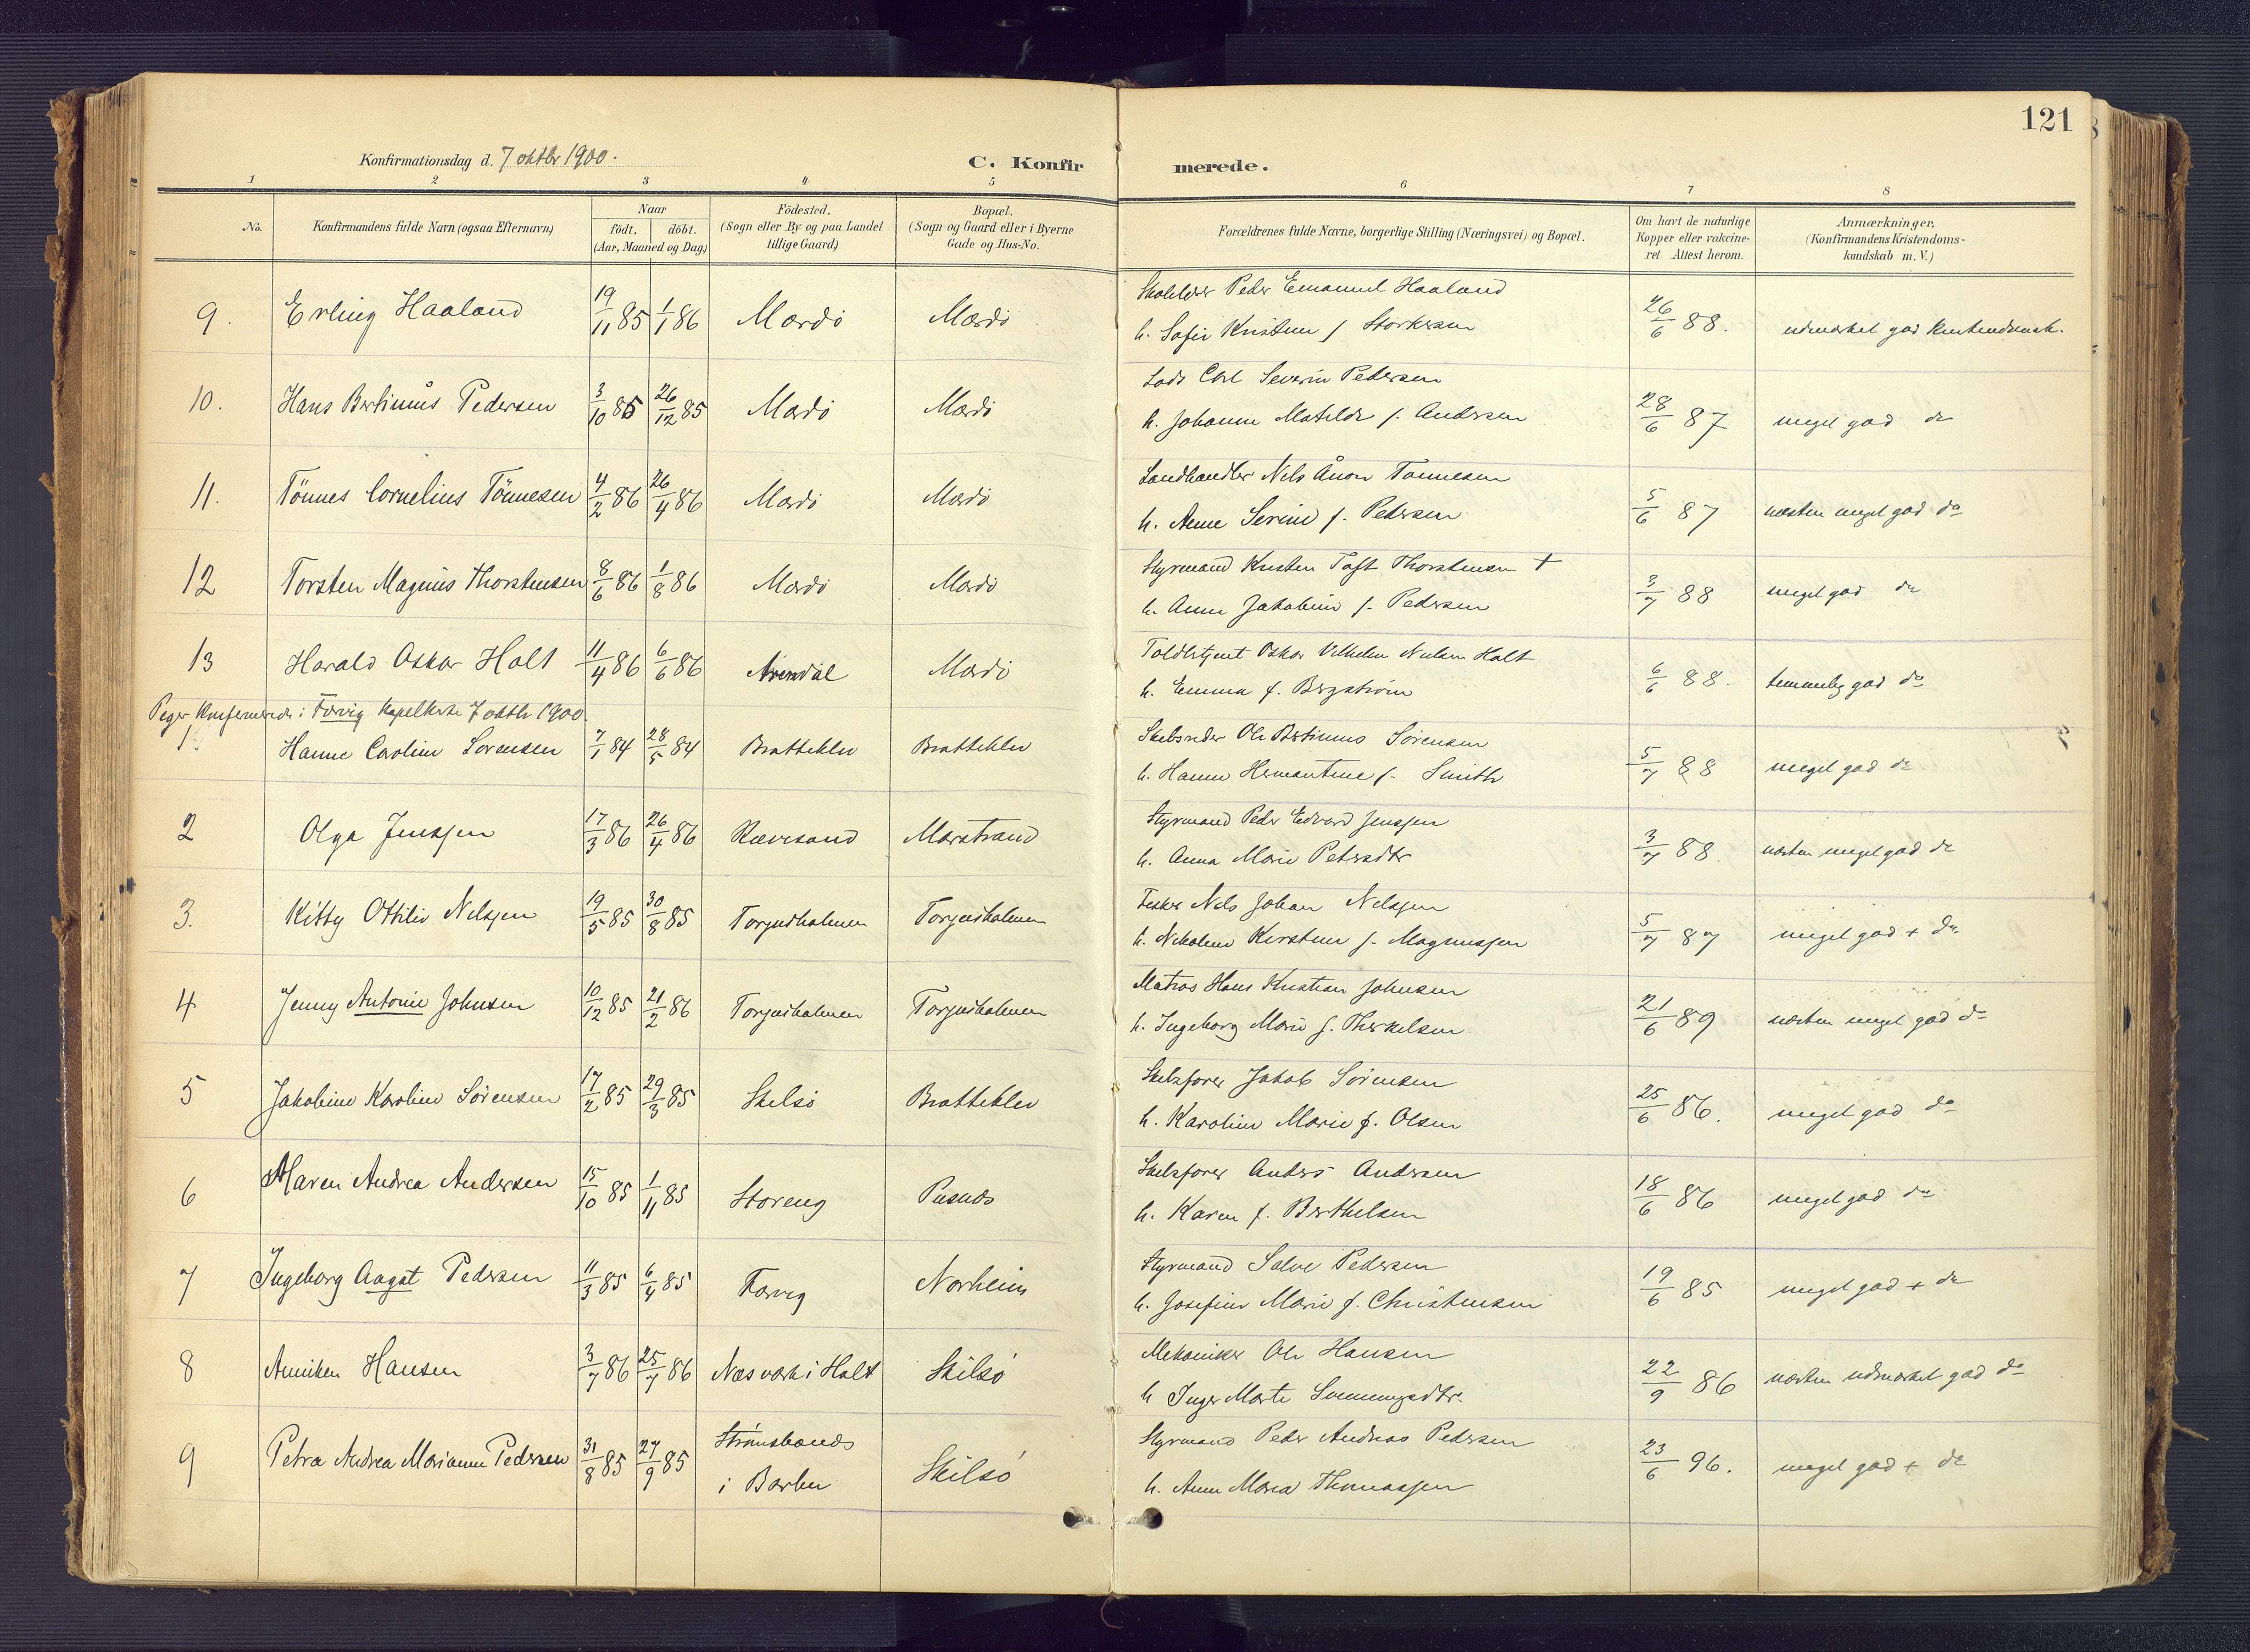 121
Konfirmationsdag d. 7 oktbr 1900.
C. Konfirmerede.
1 2 3 4 5 6 7 8
No.
Konfirmandens fulde Navn (ogsaa Efternavn)
Naar
födt. döbt.
(Aar, Maaned og Dag)
Födested.
(Sogn eller By og paa Landet
tillige Gaard)
Bopæl.
(Sogn og Gaard eller i Byerne
Gade og Hus-No.
Forældrenes fulde Navne, borgerlige Stilling (Næringsvei) og Bopæl.
Om havt de naturlige
Kopper eller vakcine-
ret. Attest herom.
Anmærkninger,
(Konfirmandens Kristendoms-
kundskab m. V.)
9. Erling Haaland 19/11 85 1/1 86 Mærdö Mærdö
Peder Emanuel Haaland
h. Sofie Kristine f Storksen 26/6 88. udmærket god
10. Hans Bertinius Pedersen 3/10 85 26/12 85 Mærdö Mærdö
Lods Carl Severin Pedersen
h. Johanne Matilde f. Andersen 28/6 87 meget god do
11. Tönnes Cornelius Tönnesen 4/2 86 26/4 86 Mærdö Mærdö
Landhandler Nils Ånon Tönnesen
h. Anne Serine f. Pedersen 5/6 87 næsten meget god do
12 Torsten Magnus Thorstensen 8/6 86 1/8 86 Mærdö Mærdö
Styrmand Kristen Toft Thorstensen +
h. Anne Jakobine f. Pedersen 3/7 88 meget god do
13 Harald Oskar Holt 11/4 86 6/6 86 Arendal Mærdö
Toldbetjent Oskar Vilhelm Nielsen Holt
h. Emma f. Bergström 6/6 88. temmelig god do
Piger Konfirmerede i Færvig Kapelkirke 7 oktbr 1900
1 Hanne Caroline Sorensen 7/1 84 28/5 84 Bratteklev Bratteklev
Skibsreder Ole Bertinius Sörensen
h. Hanne Hermantine f. Smith 5/7 88 meget god do
2 Olga Jenssen 17/3 86 26/4 86 Rævesand Marstrand
Styrmand Peder Edvard Jenssen
h. Anna Marie Petersdtr 3/7 88. næsten meget god do
3. Kitty Ottilie Nilssen 19/5 85 30/8 85 Torjusholmen Torjusholmen
Fisker Nils Johan Nilssen
h. Nikoline Kirstine f. Magnussen 5/7 87 meget god + do
4 Jenny Antonie Johnsen 10/12 85 21/2 86 Torjusholmen Torjusholmen
Matros Hans Kristian Johnsen
h. Ingeborg Marie f. Therkelsen 21/6 89 næsten meget god do
5 Jakobine Karoline Sörensen 17/2 85 29/3 85 Skilsö Bratteklev
Skibsförer Jakob Sörensen
h. Karoline Marie f. Olsen 25/6 86. meget god do
6 Maren Andrea Andersen 15/10 85 1/11 85 Storeng Pusnæs
Skibsförer Anders Andersen
h. Karen f. Berthelsen 18/6 86 meget god do
7 Ingeborg Aagot Pedersen 11/3 85 6/4 85 Færvig Norheim
Styrmand Salve Pedersen
h. Josefine Marie f. Christensen 19/6 85 meget god + do
8 Anniken Hansen 3/7 86 25/7 86 Næs værk i Holt Skilsö
Mekaniker Ole Hansen
h Inger Marte 22/9 86 næsten udmærket god do
9 Petra Andrea Marianne Pedersen 31/8 85 27/9 85 Strömsbunæs
i Barbu Skilsö
Styrmand Peder Andreas Pedersen
h. Anne Maria Thomassen 23/6 96. meget god + do